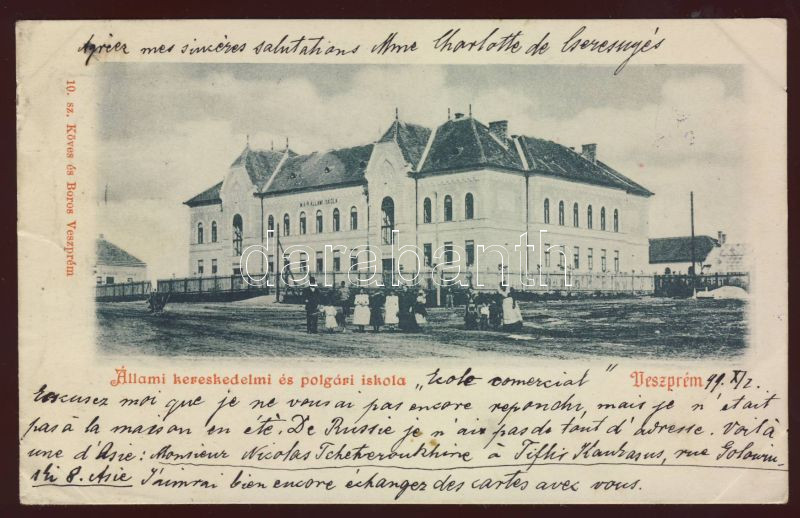 Agréez mes sincères salutations Mme Charlotte de Cseresnyés
10. sz. Köves és Boros Veszprém
M. KIR. ÁLLAMI ISKOLA
darabanth
Állami kereskedelmi és polgári iskola „Ecole comercial" Veszprém 99. X/2.
Excusez moi que je ne vous ai pas encore reponchi, mais je n'était
pas à la maison en etè. De Russie je n'ai pas de tout d'adresse. Voilà
une d'Asie: Monsieur Nicolas Tchetveroukhine à Tiflis Kaukasus, rue Golowin-
ski 8. Asie J'aimrai bien encore échangez des cartes avec vous.